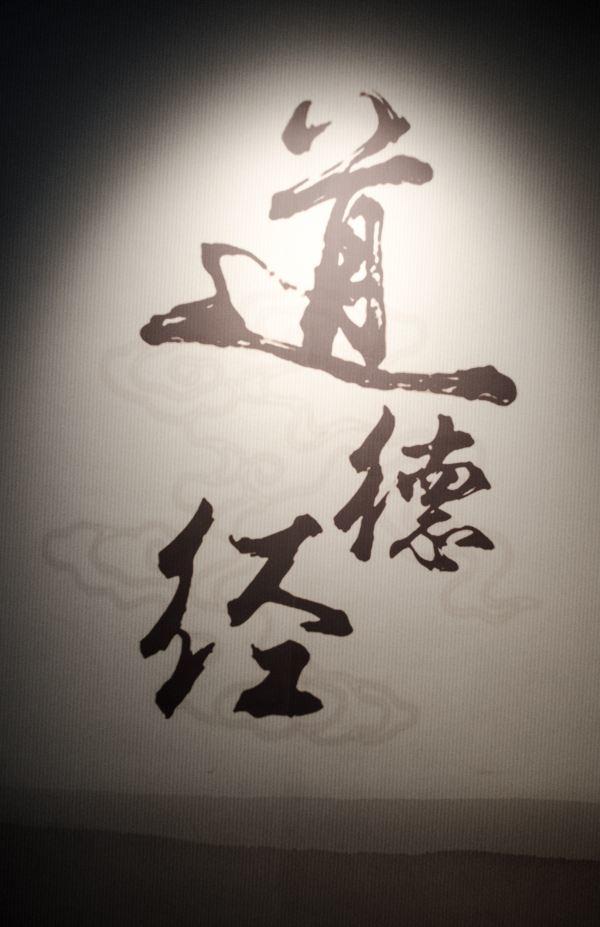 道
德
经